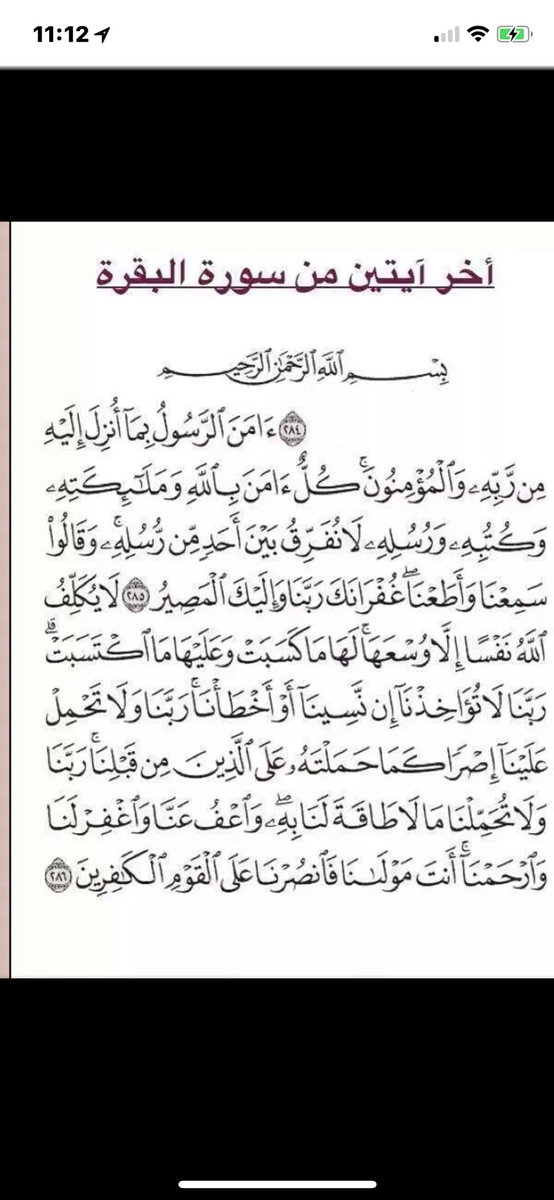 11:12
أخر آيتين من سورة البقرة
بِسْمِ ٱللَّهِ ٱلرَّحْمَٰنِ ٱلرَّحِيمِ
٢٨٤ ءَامَنَ ٱلرَّسُولُ بِمَآ أُنزِلَ إِلَيْهِ
مِن رَّبِّهِۦ وَٱلْمُؤْمِنُونَ ۚ كُلٌّ ءَامَنَ بِٱللَّهِ وَمَلَٰٓئِكَتِهِۦ
وَكُتُبِهِۦ وَرُسُلِهِۦ لَا نُفَرِّقُ بَيْنَ أَحَدٍ مِّن رُّسُلِهِۦ ۚ وَقَالُوا۟
سَمِعْنَا وَأَطَعْنَا ۖ غُفْرَانَكَ رَبَّنَا وَإِلَيْكَ ٱلْمَصِيرُ ٢٨٥ لَا يُكَلِّفُ
ٱللَّهُ نَفْسًا إِلَّا وُسْعَهَا ۚ لَهَا مَا كَسَبَتْ وَعَلَيْهَا مَا ٱكْتَسَبَتْ ۗ
رَبَّنَا لَا تُؤَاخِذْنَآ إِن نَّسِينَآ أَوْ أَخْطَأْنَا ۚ رَبَّنَا وَلَا تَحْمِلْ
عَلَيْنَآ إِصْرًا كَمَا حَمَلْتَهُۥ عَلَى ٱلَّذِينَ مِن قَبْلِنَا ۚ رَبَّنَا
وَلَا تُحَمِّلْنَا مَا لَا طَاقَةَ لَنَا بِهِۦ ۖ وَٱعْفُ عَنَّا وَٱغْفِرْ لَنَا
وَٱرْحَمْنَآ ۚ أَنتَ مَوْلَىٰنَا فَٱنصُرْنَا عَلَى ٱلْقَوْمِ ٱلْكَٰفِرِينَ ٢٨٦